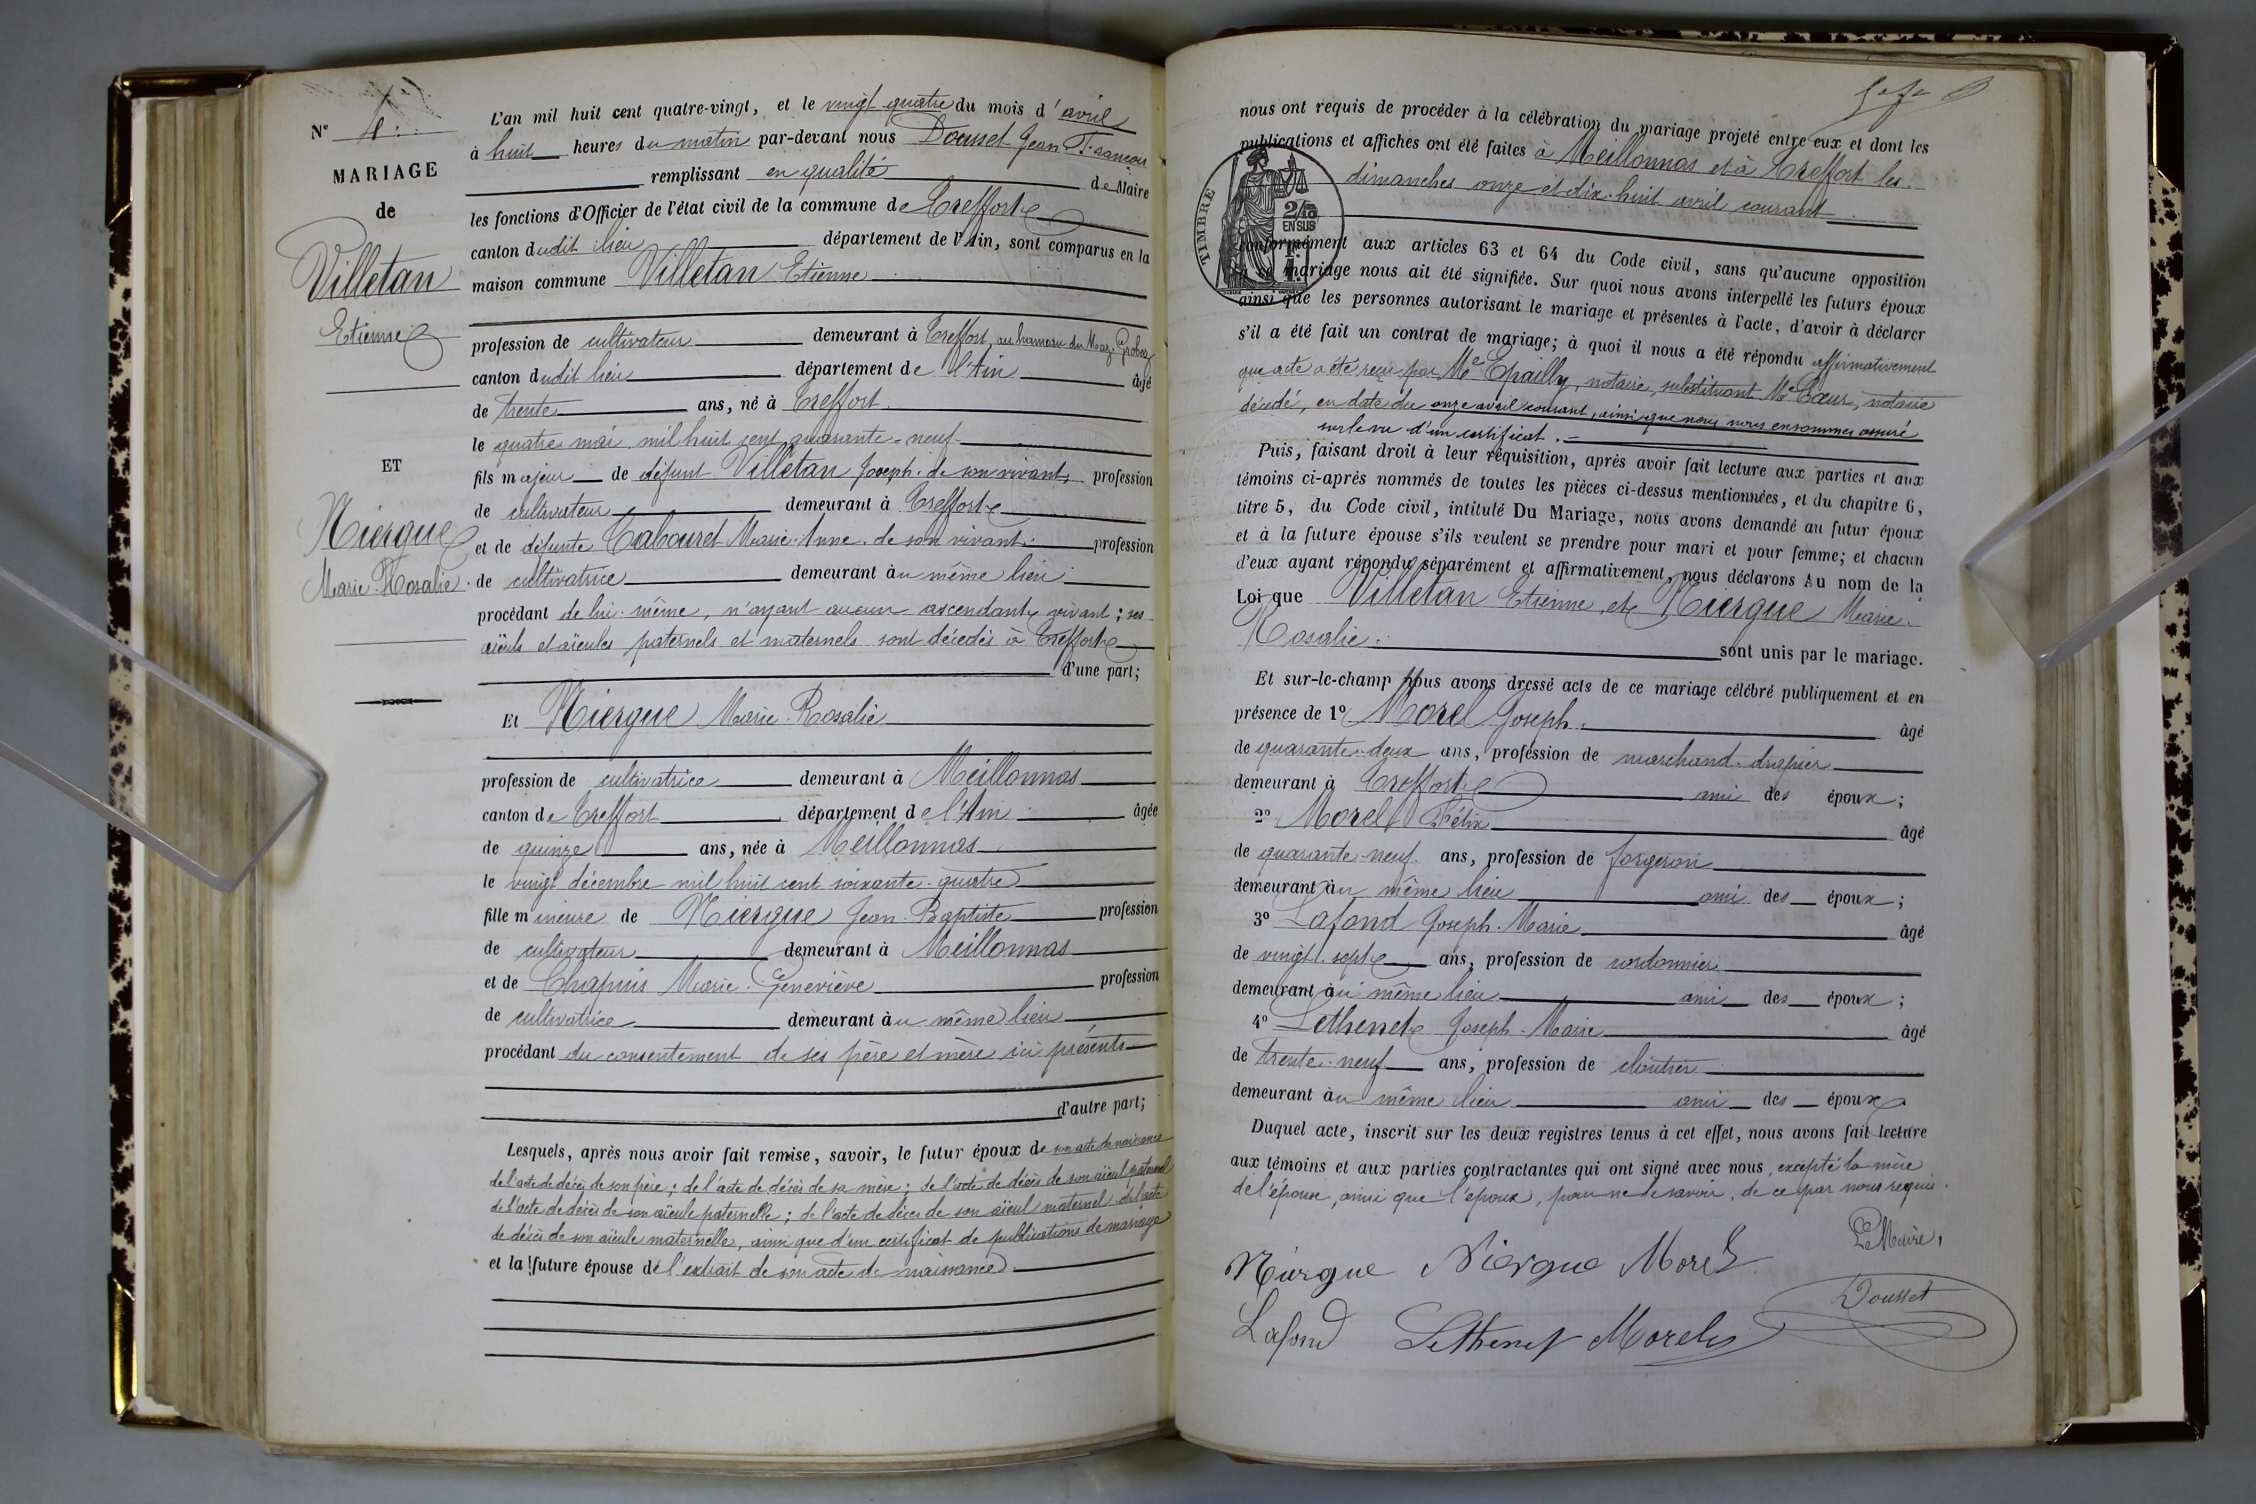 N° 4.
MARIAGE
de
Villetan
Etienne
ET
Niergue
Marie-Rosalie.
L'an mil huit cent quatre-vingt, et le vingt-quatre du mois d'avril
à huit heures du matin par-devant nous Dousset Jean François
remplissant en qualité de Maire
les fonctions d'Officier de l'état civil de la commune de Treffort
canton dudit lieu département de l'Ain, sont comparus en la
maison commune Villetan Etienne
profession de cultivateur demeurant à Treffort, au hameau du Maz-Groboz
canton dudit lieu département de l'Ain âgé
de trente ans, né à Treffort
le quatre mai mil huit cent quarante-neuf
fils majeur de défunt Villetan Joseph, de son vivant, profession
de cultivateur demeurant à Treffort
et de défunte Tabouret Marie-Anne, de son vivant profession
de cultivatrice demeurant au même lieu
procédant de lui-même, n'ayant aucun ascendant vivant; ses
aïeuls et aïeules paternels et maternels sont décédés à Treffort
d'une part;
Et Niergue Marie-Rosalie
profession de cultivatrice demeurant à Meillonnas
canton de Treffort département de l'Ain âgée
de quinze ans, née à Meillonnas
le vingt décembre mil huit cent soixante-quatre
fille mineure de Niergue Jean-Baptiste profession
de cultivateur demeurant à Meillonnas
et de Chapuis Marie-Geneviève profession
de cultivatrice demeurant au même lieu
procédant du consentement de ses père et mère ici présents
d'autre part;
Lesquels, après nous avoir fait remise, savoir, le futur époux de son acte de naissance
de l'acte de décès de son père; de l'acte de décès de sa mère; de l'acte de décès de son aïeul paternel
de l'acte de décès de son aïeule paternelle; de l'acte de décès de son aïeul maternel de l'acte
de décès de son aïeule maternelle, ainsi que d'un certificat de publications de mariage
et la future épouse de l'extrait de son acte de naissance
nous ont requis de procéder à la célébration du mariage projeté entre eux et dont les
publications et affiches ont été faites à Meillonnas et à Treffort les
dimanches onze et dix-huit avril courant
TIMBRE
2/10
EN SUS
conformément aux articles 63 et 64 du Code civil, sans qu'aucune opposition
à ce mariage nous ait été signifiée. Sur quoi nous avons interpellé les futurs époux
ainsi que les personnes autorisant le mariage et présentes à l'acte, d'avoir à déclarer
s'il a été fait un contrat de mariage; à quoi il nous a été répondu affirmativement
que acte a été reçu par Me Epailly, notaire, substituant Me Coeur, notaire
décédé, en date du onze avril courant, ainsi que nous nous en sommes assuré
sur le vu d'un certificat.
Puis, faisant droit à leur réquisition, après avoir fait lecture aux parties et aux
témoins ci-après nommés de toutes les pièces ci-dessus mentionnées, et du chapitre 6,
titre 5, du Code civil, intitulé Du Mariage, nous avons demandé au futur époux
et à la future épouse s'ils veulent se prendre pour mari et pour femme; et chacun
d'eux ayant répondu séparément et affirmativement, nous déclarons Au nom de la
Loi que Villetan Etienne, et Niergue Marie-
Rosalie sont unis par le mariage.
Et sur-le-champ Nous avons dressé acte de ce mariage célébré publiquement et en
présence de 1° Morel Joseph âgé
de quarante-deux ans, profession de marchand-drapier
demeurant à Treffort ami des époux;
2° Morel Félix âgé
de quarante-neuf ans, profession de forgeron
demeurant au même lieu ami des époux;
3° Lafond Joseph-Marie âgé
de vingt-sept ans, profession de cordonnier
demeurant au même lieu ami des époux;
4° Lethenet Joseph-Marie âgé
de trente-neuf ans, profession de cloutier
demeurant au même lieu ami des époux
Duquel acte, inscrit sur les deux registres tenus à cet effet, nous avons fait lecture
aux témoins et aux parties contractantes qui ont signé avec nous, excepté la mère
de l'épouse, ainsi que l'époux, pour ne le savoir, de ce par nous requis.
Le Maire,
Niergue Niergue Morel
Dousset
Lafond Lethenet Morel